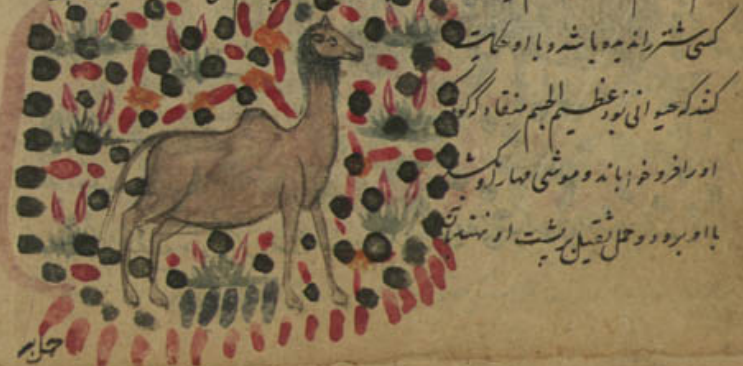 کسی شتر را ندیده باشد و با او حکایت
کنند که حیوانی بود عظیم الجسم منقاد که گوید
او را فرو خواباند و موشی مهار او بکشد
با او برود و حمل ثقیل بر پشت او نهند